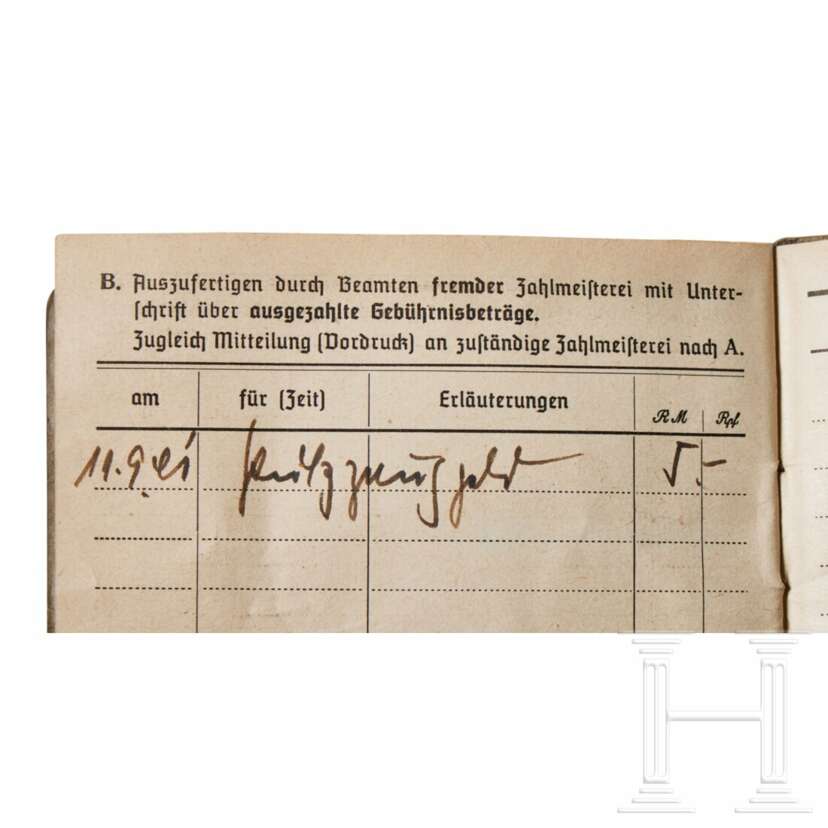 B. Auszufertigen durch Beamten fremder Zahlmeisterei mit Unter-
schrift über ausgezahlte Gebührnisbeträge.
Zugleich Mitteilung (Vordruck) an zuständige Zahlmeisterei nach A.
am für (Zeit) Erläuterungen RM Rpf
11.9.41 Putzzeuggeld 5.-
H